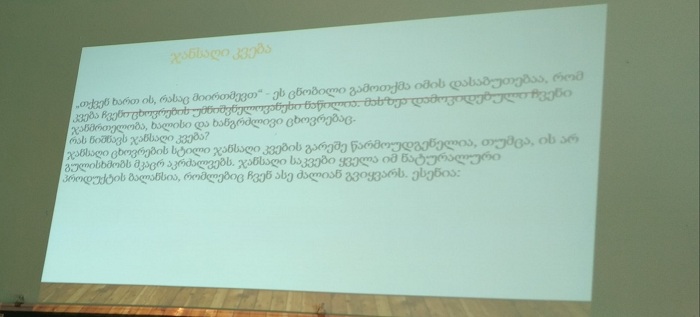 ჯანსაღი კვება
„თქვენ ხართ ის, რასაც მიირთმევთ“ - ეს ცნობილი გამოთქმა იმის დასაბუთებაა, რომ
კვება ჩვენი ცხოვრების უმნიშვნელოვანესი ნაწილია. მასზეა დამოკიდებული ჩვენი
ჯანმრთელობა, ხალისი და ხანგრძლივი ცხოვრებაც.
რას ნიშნავს ჯანსაღი კვება?
ჯანსაღი ცხოვრების სტილი ჯანსაღი კვების გარეშე წარმოუდგენელია, თუმცა, ის არ
გულისხმობს მკაცრ აკრძალვებს. ჯანსაღი საკვები ყველა იმ ნატურალური
პროდუქტის ბალანსია, რომლებიც ჩვენ ასე ძალიან გვიყვარს. ესენია: